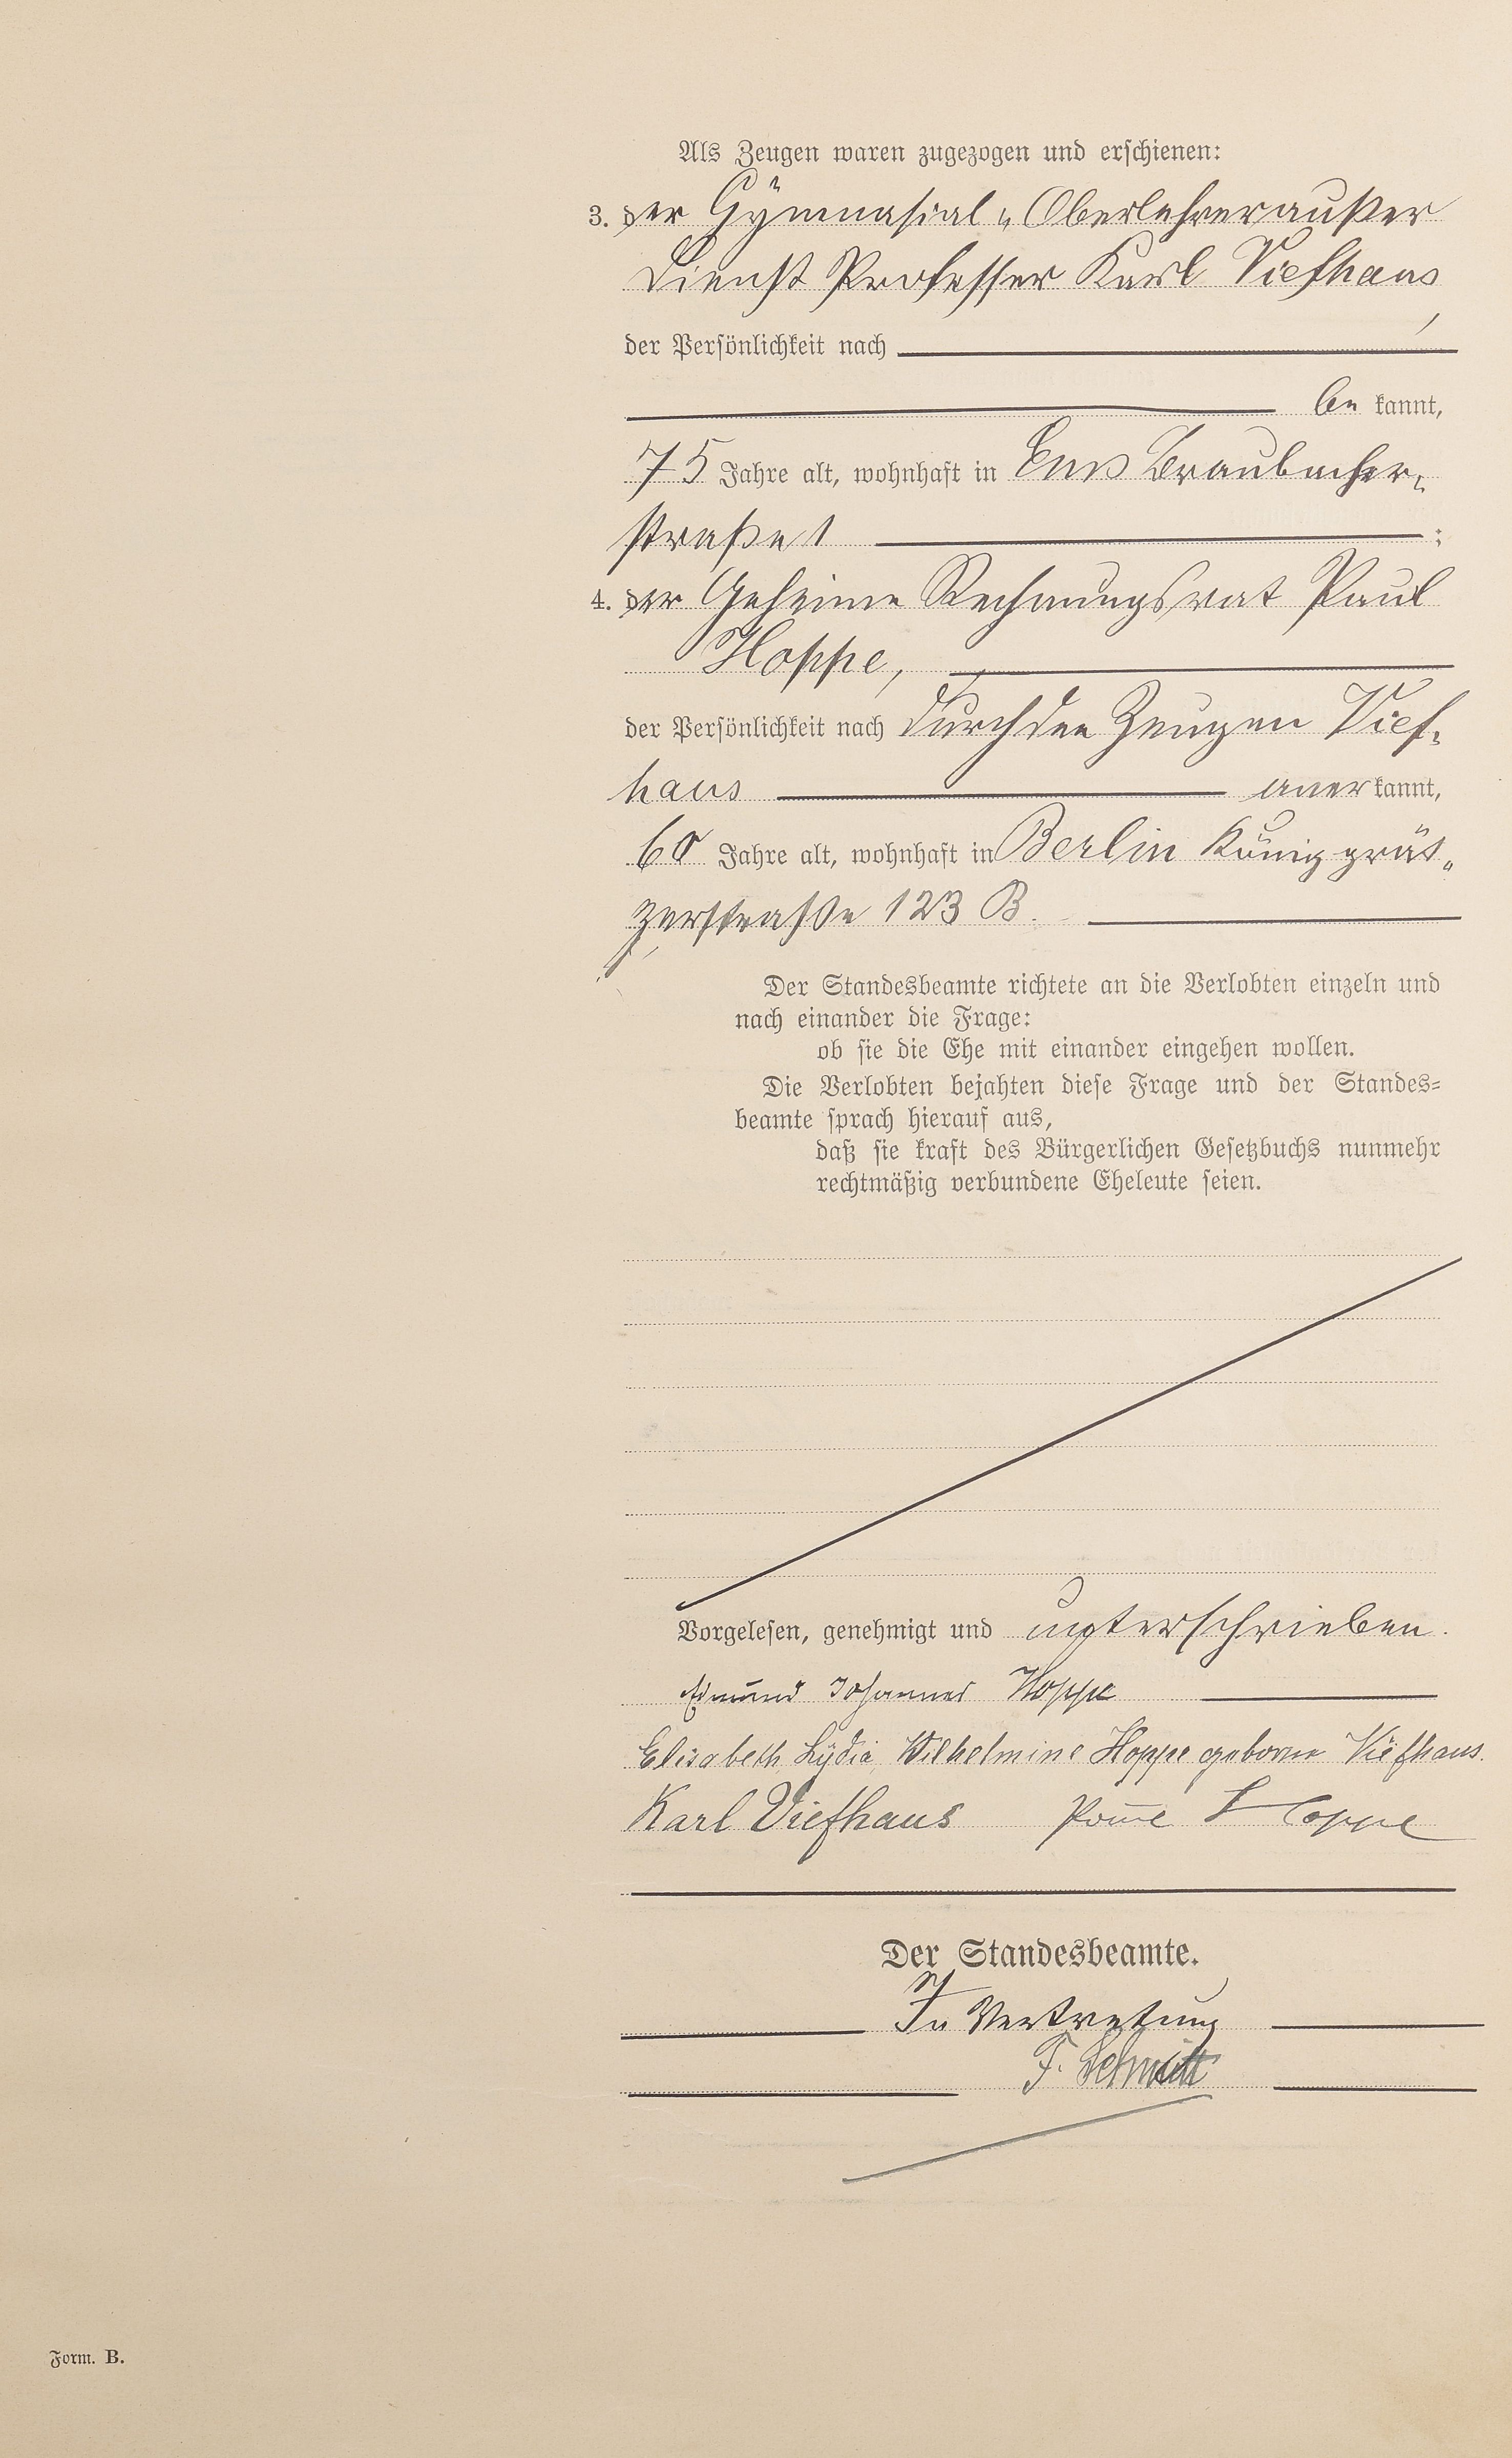 Als Zeugen waren zugezogen und erschienen:
3. der Gymnasial-Oberlehrer außer
Dienst Professor Karl Viefhaus,
der Persönlichkeit nach
be kannt,
75 Jahre alt, wohnhaft in Ems Braubacher-
straße 1 ;
4. der Geheime Rechnungsrat Paul
Hoppe,
der Persönlichkeit nach durch den Zeugen Vief-
haus aner kannt,
60 Jahre alt, wohnhaft in Berlin Königgrät-
zerstraße 123 B.
Der Standesbeamte richtete an die Verlobten einzeln und
nach einander die Frage:
ob sie die Ehe mit einander eingehen wollen.
Die Verlobten bejahten diese Frage und der Standes-
beamte sprach hierauf aus,
daß sie kraft des Bürgerlichen Gesetzbuchs nunmehr
rechtmäßig verbundene Eheleute seien.
Vorgelesen, genehmigt und unterschrieben.
Edmund Johannes Hoppe
Elisabeth Lydia Wilhelmine Hoppe geborene Viefhaus.
Karl Viefhaus Paul Hoppe
Der Standesbeamte.
In Vertretung
F. Schmitt
Form. B.